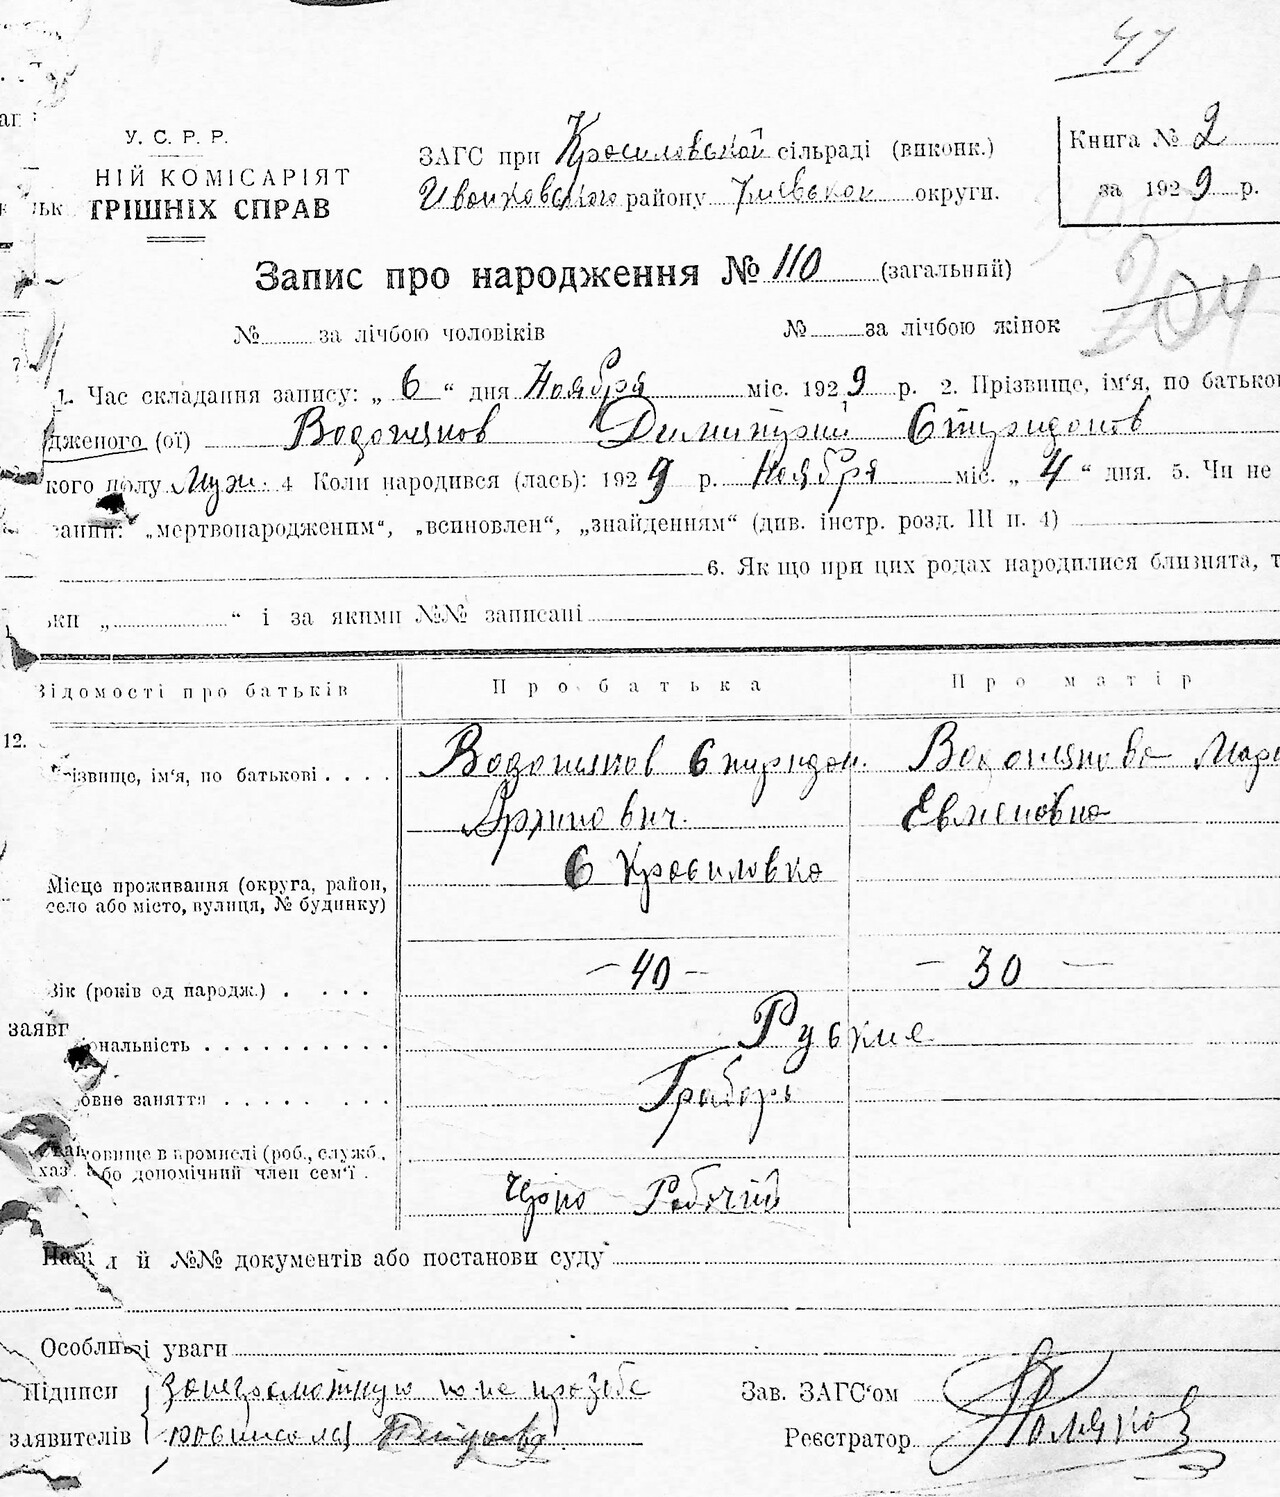 41
У. С. Р. Р.
НІЙ КОМІСАРІЯТ
ТРІШНІХ СПРАВ
ЗАГС при Красиловской сільраді (виконк.)
Иванковского району Киевской округи.
Книга № 2
за 1929 р.
204
Запис про народження № 110 (загальний)
№ за лічбою чоловіків № за лічбою жінок
1. Час складання запису: „ 6 “ дня Ноября міс. 1929 р. 2. Прізвище, ім‘я, по батькові
дженого (ої) Водопянов Димитрий Спиридонов
кого полу Муж. 4 Коли народився (лась): 1929 р. Ноября міс. „ 4 “ дня. 5. Чи не
„мертвонародженим“, „всиновлен“, „знайденням“ (див. інстр. розд. III п. 4)
6. Якщо при цих родах народилися близнята, т
ьки „ “ і за якими №№ записані
Відомості про батьків Про батька Про матір
12.
різвище, ім‘я, по батькові . . . . Водопянов Спиридон. Водопянова Мари
Архипович. Евменовна
Місце проживання (округа, район, село або місто, вулиця, № будинку) С Красиловка
Вік (років од народж.) . . . . — 40 — — 30 —
заявг
ональність . . . . . . . . . . Руские
овне заняття . . . . . . . . Грабарь
овище в промислі (роб., служб.,
хаз. або допомічний член сем‘ї . Чорно Рабочий
й №№ документів або постанови суду
Особливі уваги
Підписи заявителів
неграмотную по ее прозбе
росписался
Зав. ЗАГС‘ом
Реєстратор Поляков